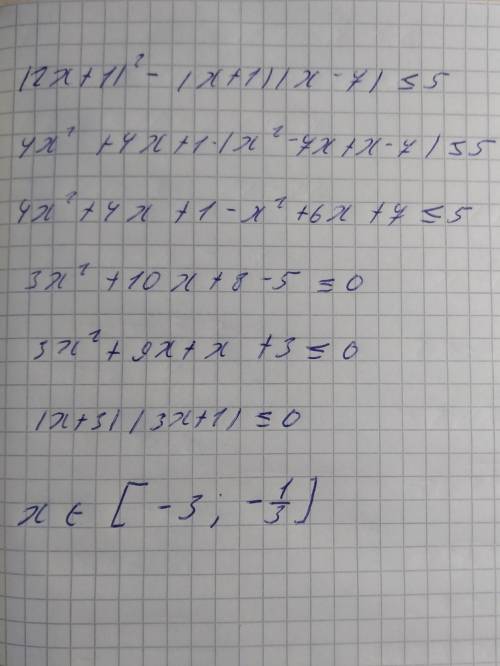 (2x+1)² - (x+1)(x-7) ≤ 5
4x² + 4x + 1 - (x² - 7x + x - 7) ≤ 5
4x² + 4x + 1 - x² + 6x + 7 ≤ 5
3x² + 10x + 8 - 5 ≤ 0
3x² + 9x + x + 3 ≤ 0
(x+3)(3x+1) ≤ 0
x ∈ [-3; -1/3]